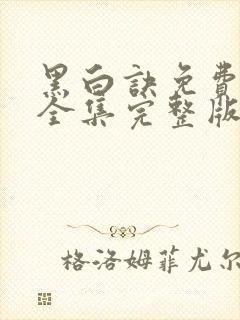 黑白訣免費
全集完整版
格洛姆菲尤尔